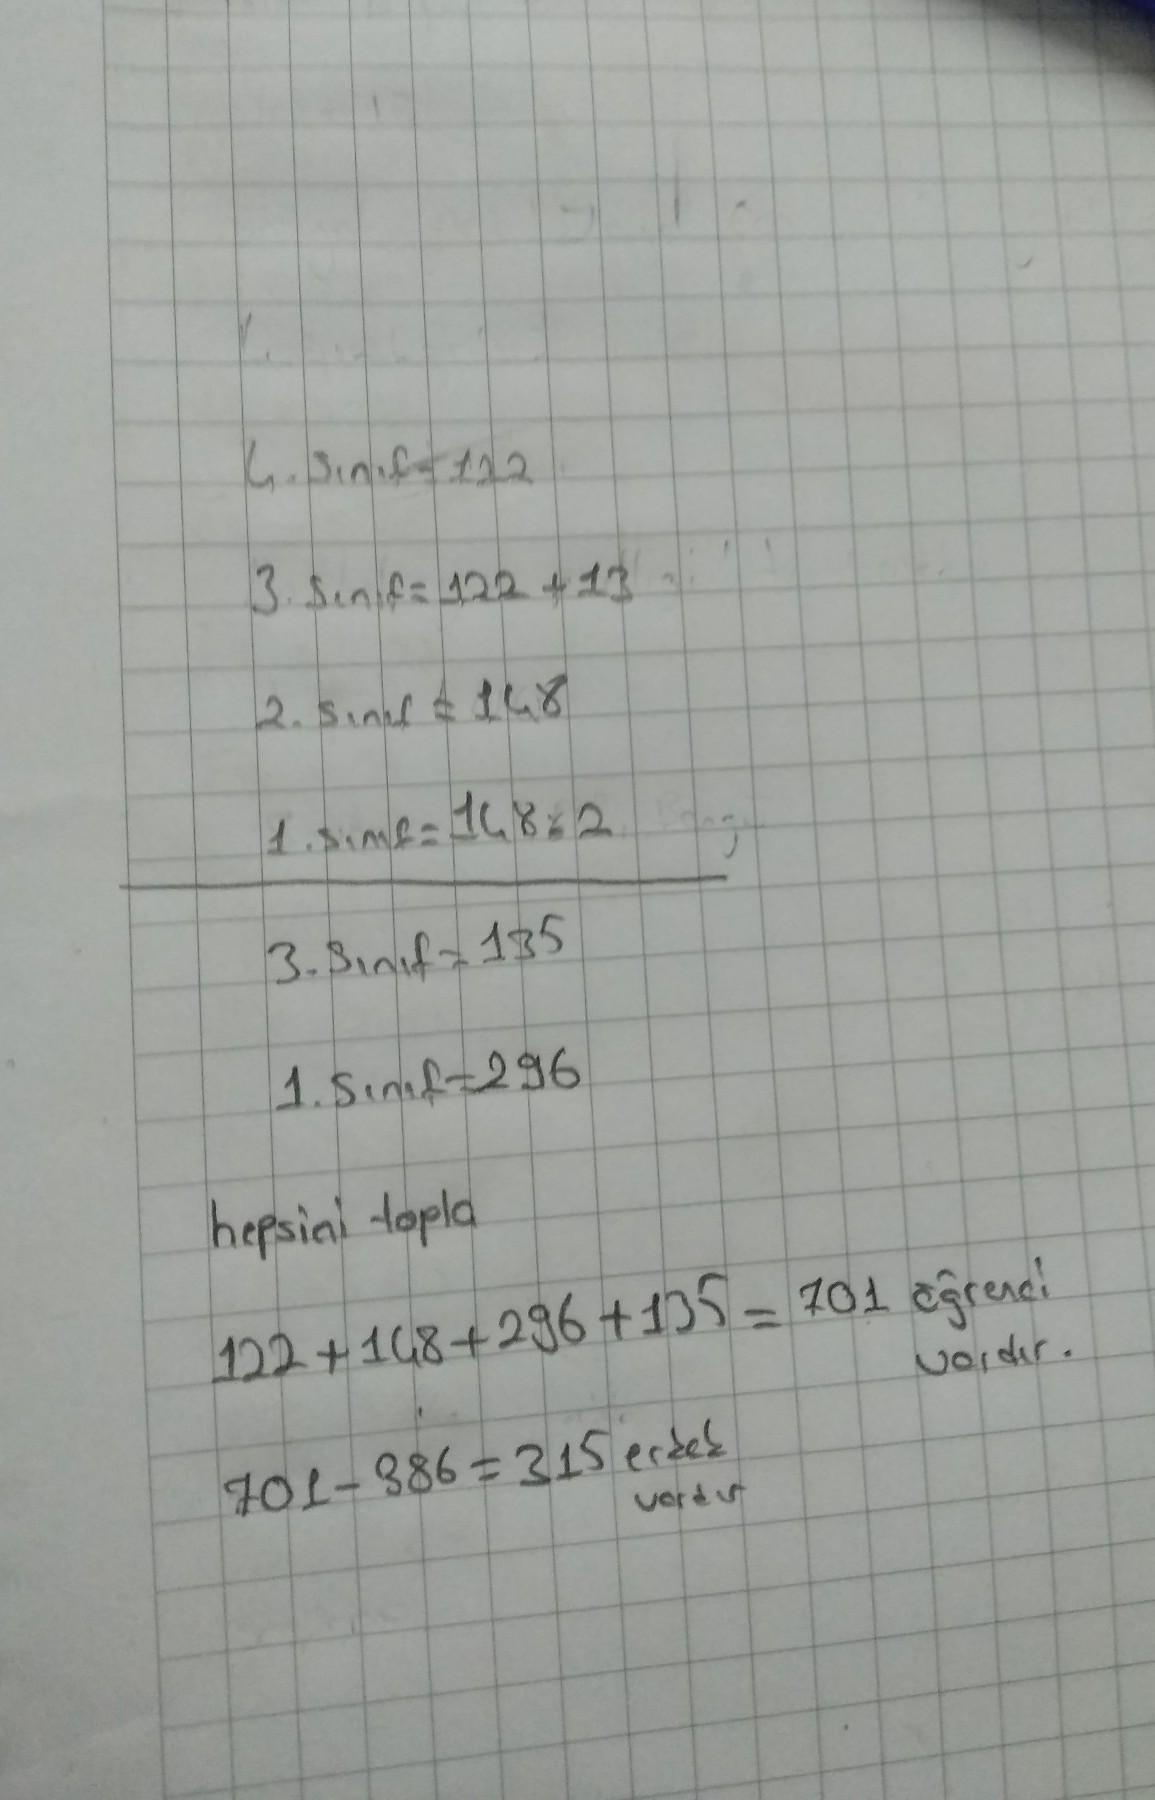 4. Sınıf = 122
3. Sınıf = 122 + 13
2. Sınıf = 148
1. Sınıf = 148 x 2
3. Sınıf = 135
1. Sınıf = 296
hepsini topla
122 + 148 + 296 + 135 = 701 öğrenci
vardır.
701 - 386 = 315 erkek
vardır